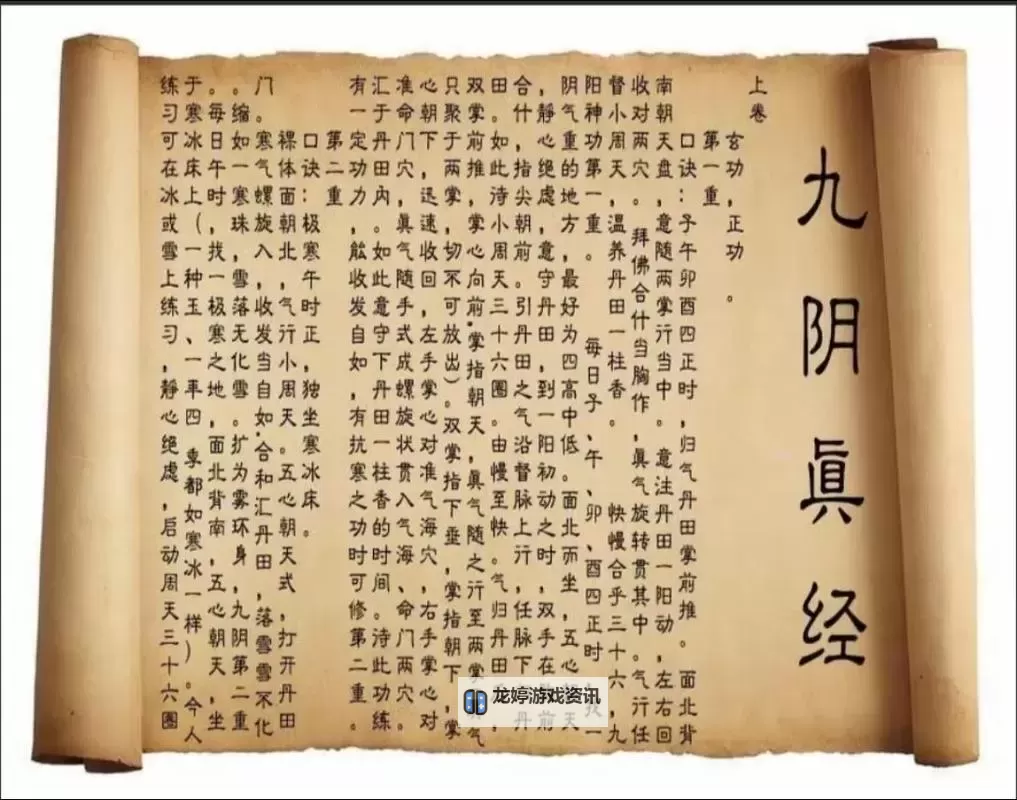 九阴眞经
上卷
玄功,正功。
第一重
口诀:子午卯酉四正时,归气丹田掌前推。面北背
南朝天盘,意随两掌行当中。意注丹田一阳动,左右回
收对两穴。拜佛合什当胸作,眞气旋转贯其中。气行任
督小周天,温养丹田一柱香。快慢合乎三十六,九
阳神功第一重。每日子、午、卯、酉四正时 找一
阴气重的地方,最好为四高中低。面北而坐,五心朝天
,静心绝虑,意守丹田,到一阳初动之时,双手在 前
合什,指尖朝前。引丹田之气沿督脉上行,任脉下 丹
田。如此待小周天三十六圈。由慢至快。气归丹田
双掌前推,掌心向前,掌指朝天,眞气随之行至两掌 气
只聚于两掌,切不可放出)。双掌指下垂,掌指朝下,掌
心朝下,迅速收回,左手掌心对准气海穴,右手掌心对
准命门穴,眞气随手式成螺旋状贯入气海、命门两穴。
汇于丹田内。如此意守下丹田一柱香的时间。待此功练
有一定功力,能收发自如,有抗寒之功时可修第二重。
第二重
口诀:极寒午时正,独坐寒冰床。
裸体面朝北,气行小周天。五心朝天式,打开丹田
门。寒气螺旋入,收发当自如.合和汇丹田,落雪雪不化
。缩如一寒珠,雪落无化雪。扩为雾环身,九阴第二重
。每日午时,找一极寒之地,面北背南,五心朝天,坐
于寒冰床上(一种玉、一年四季都如寒冰一样)。今人
练习可在冰或雪上练习,静心绝虑,启动周天三十六圈
龙婷游戏资讯